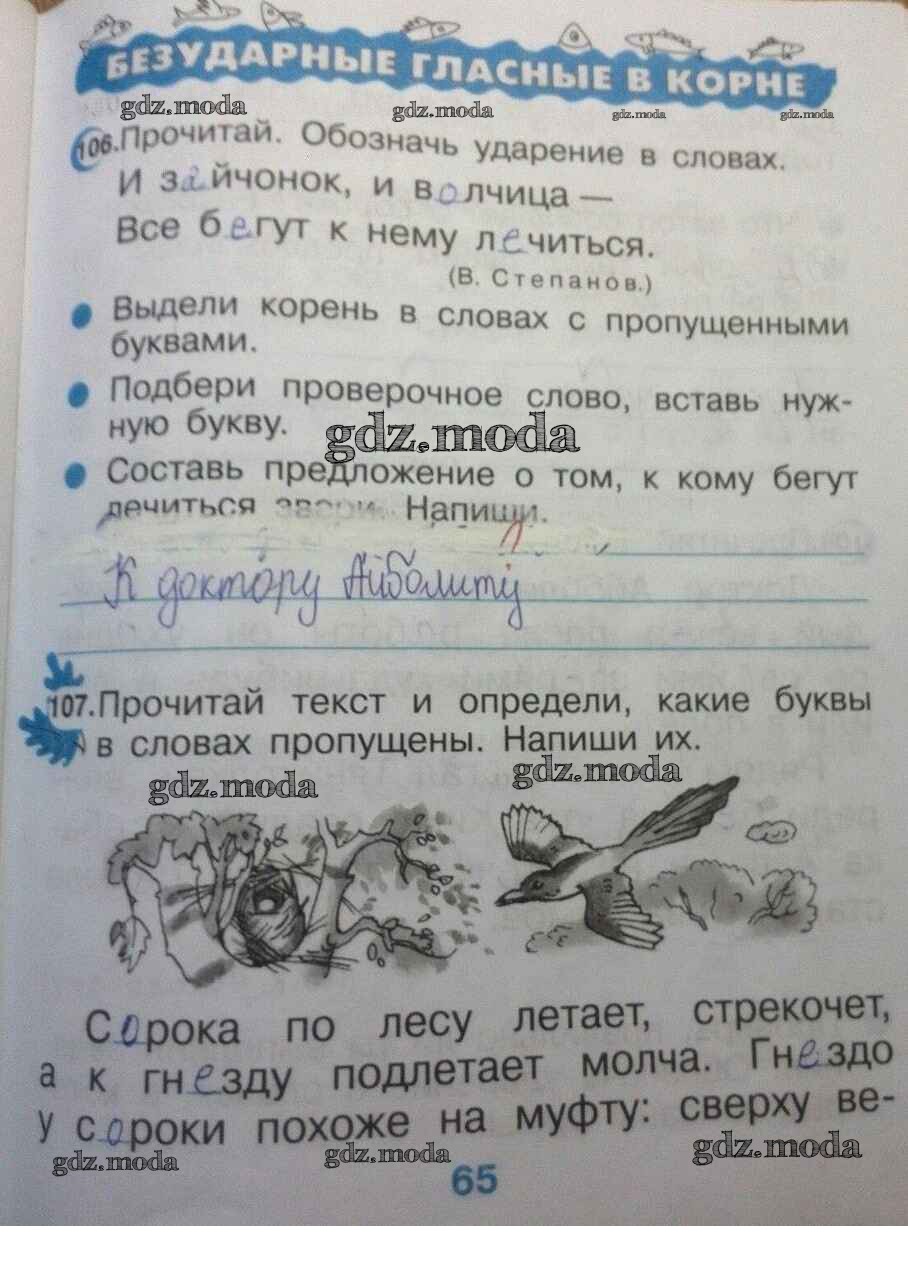 БЕЗУДАРНЫЕ ГЛАСНЫЕ В КОРНЕ
gdz.moda gdz.moda gdz.moda
106. Прочитай. Обозначь ударение в словах.
И зайчонок, и волчица —
Все бегут к нему лечиться.
(В. Степанов.)
Выдели корень в словах с пропущенными
буквами.
Подбери проверочное слово, вставь нуж-
ную букву.
gdz.moda
Составь предложение о том, к кому бегут
лечиться звери. Напиши.
К доктору Айболиту
107. Прочитай текст и определи, какие буквы
в словах пропущены. Напиши их.
gdz.moda gdz.moda
Сорока по лесу летает, стрекочет,
а к гнезду подлетает молча. Гнездо
у сороки похоже на муфту: сверху ве-
gdz.moda gdz.moda gdz.moda
65